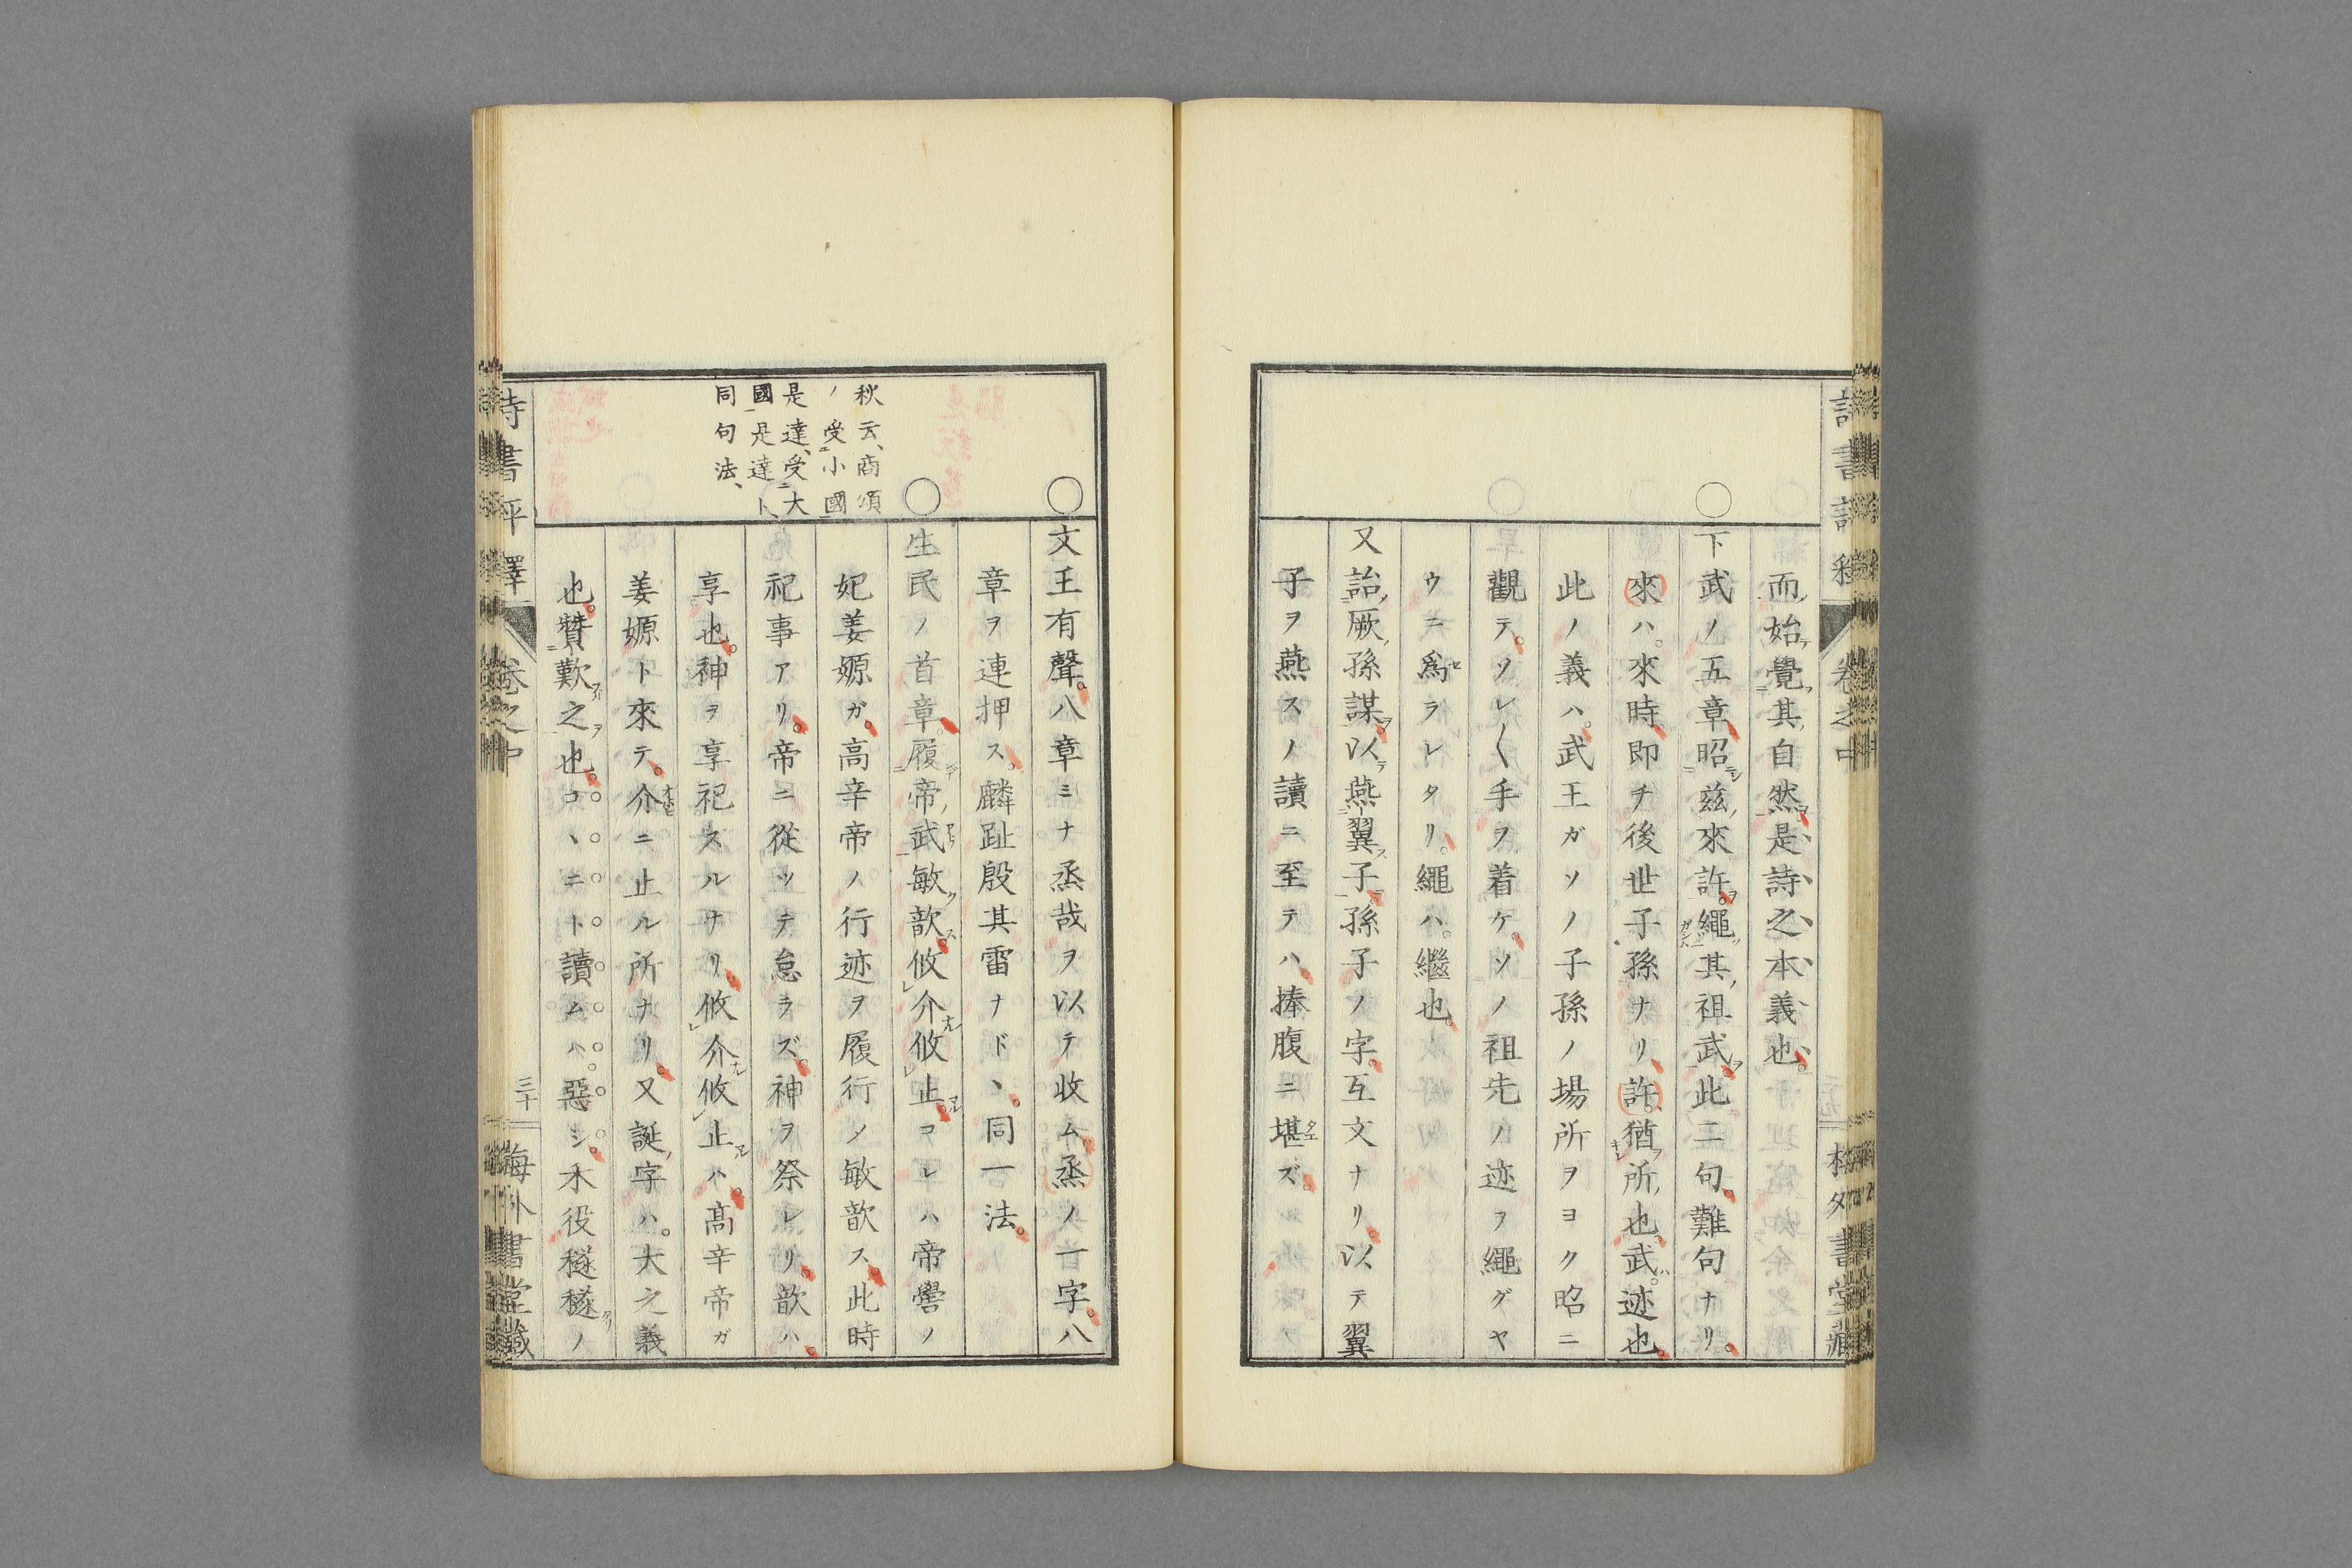 而始覺其自然是詩之本義也。
下武ノ五章昭茲來許。繩其祖武。此二句。難句ナリ。
來ハ。來時即チ後世子孫ナリ。許。猶所也。武。迹也。
此ノ義ハ。武王ガソノ子孫ノ場所ヲヨク昭ニ
觀テ。ソレ〱手ヲ着ケ。ソノ祖先ノ迹ヲ繩グヤ
ウニ爲ラレタリ。繩ハ。繼也。
又詒厥孫謀以燕翼子孫子ノ字。互文ナリ。以テ翼
子ヲ燕スノ讀ニ至テハ。捧腹ニ堪ズ。
文王有聲。八章ミナ烝哉ヲ以テ收ム。烝ノ一字。八
章ヲ連押ス。麟趾殷其雷ナド、。同一法。
秋云、商頌
ノ受小國
是達、受大
國是達ト、
同句法、
生民ノ首章。履帝武敏歆。攸介攸止。コレハ帝嚳ノ
妃姜嫄ガ。高辛帝ノ行迹ヲ履行ノ敏歆ス。此時
祀事アリ。帝ニ從ッテ怠ラズ。神ヲ祭レリ。歆ハ。
享也。神ヲ享祀スルナリ。攸介攸止ハ。高辛帝ガ
姜嫄ト來テ。介ニ止ル所ナリ。又誕字ハ。大之義
也。贊歎之也。コヽニト讀ムハ。惡シ。禾役穟穟ノ
詩書評釋 卷之中 三十